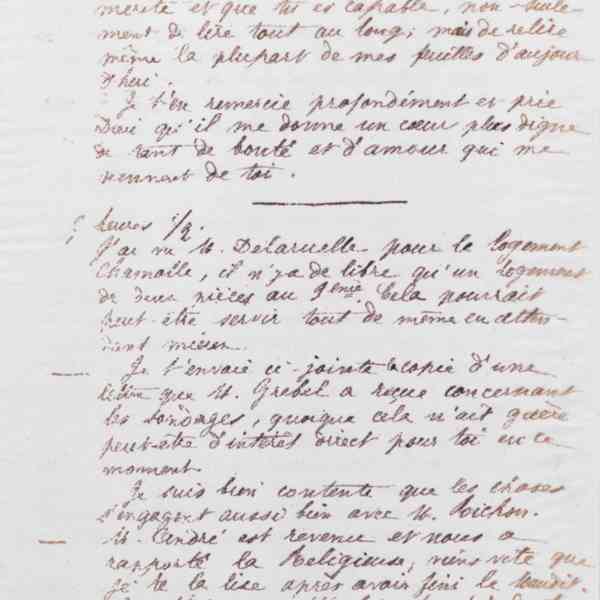 mérite et que tu es capable, non seule-
ment de lire tout au long, mais de relire
même la plupart de mes feuilles d'aujour
d'hui.
Je t'en remercie profondément et prie
Dieu qu'il me donne un cœur plus digne
de tant de bonté et d'amour qui me
viennent de toi.
heures 1/2.
J'ai vu M. Delaruelle pour le logement
Chamaile, il n'y a de libre qu'un logement
de deux pièces au 9ème. Cela pourrait
peut-être servir tout de même en atten-
dant mieux.
Je t'envoie ci-jointe copie d'une
lettre que M. Grebel a reçue concernant
les sondages, quoique cela n'ait guère
peut-être d'intérêt direct pour toi en ce
moment.
Je suis bien contente que les choses
s'engagent aussi bien avec M. Poichon.
M. André est revenu et nous a
rapporté la Religieuse, viens vite que
je te la lise après avoir fini le